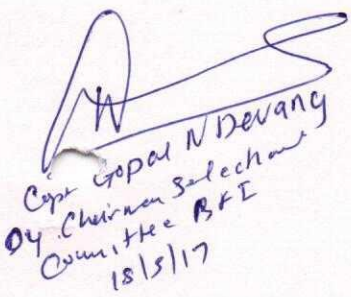 Capt Gopal N Devang
Dy. Chairman Selection
Committee BFI
18/5/17